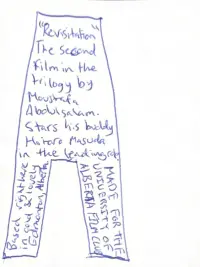 "Revisitation"
The second
film in the
trilogy by
Moustafa
Abdulsalam.
Stars his buddy
Hotoro Masuda
in the leading role
Based right here
in cold but lovely
Edmonton, Alberta
MADE FOR THE
UNIVERSITY OF
ALBERTA FILM CLUB